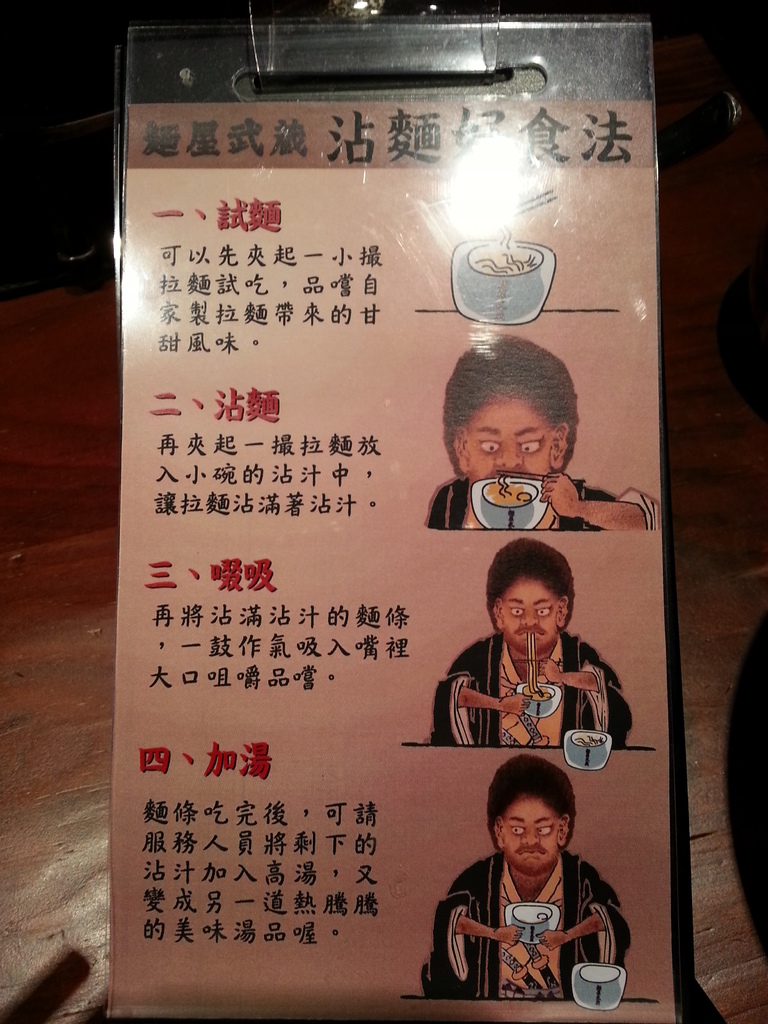 麵屋武藏 沾麵好食法
一、試麵
可以先夾起一小撮
拉麵試吃，品嚐自
家製拉麵帶來的甘
甜風味。
二、沾麵
再夾起一撮拉麵放
入小碗的沾汁中，
讓拉麵沾滿著沾汁。
三、啜吸
再將沾滿沾汁的麵條
，一鼓作氣吸入嘴裡
大口咀嚼品嚐。
四、加湯
麵條吃完後，可請
服務人員將剩下的
沾汁加入高湯，又
變成另一道熱騰騰
的美味湯品喔。